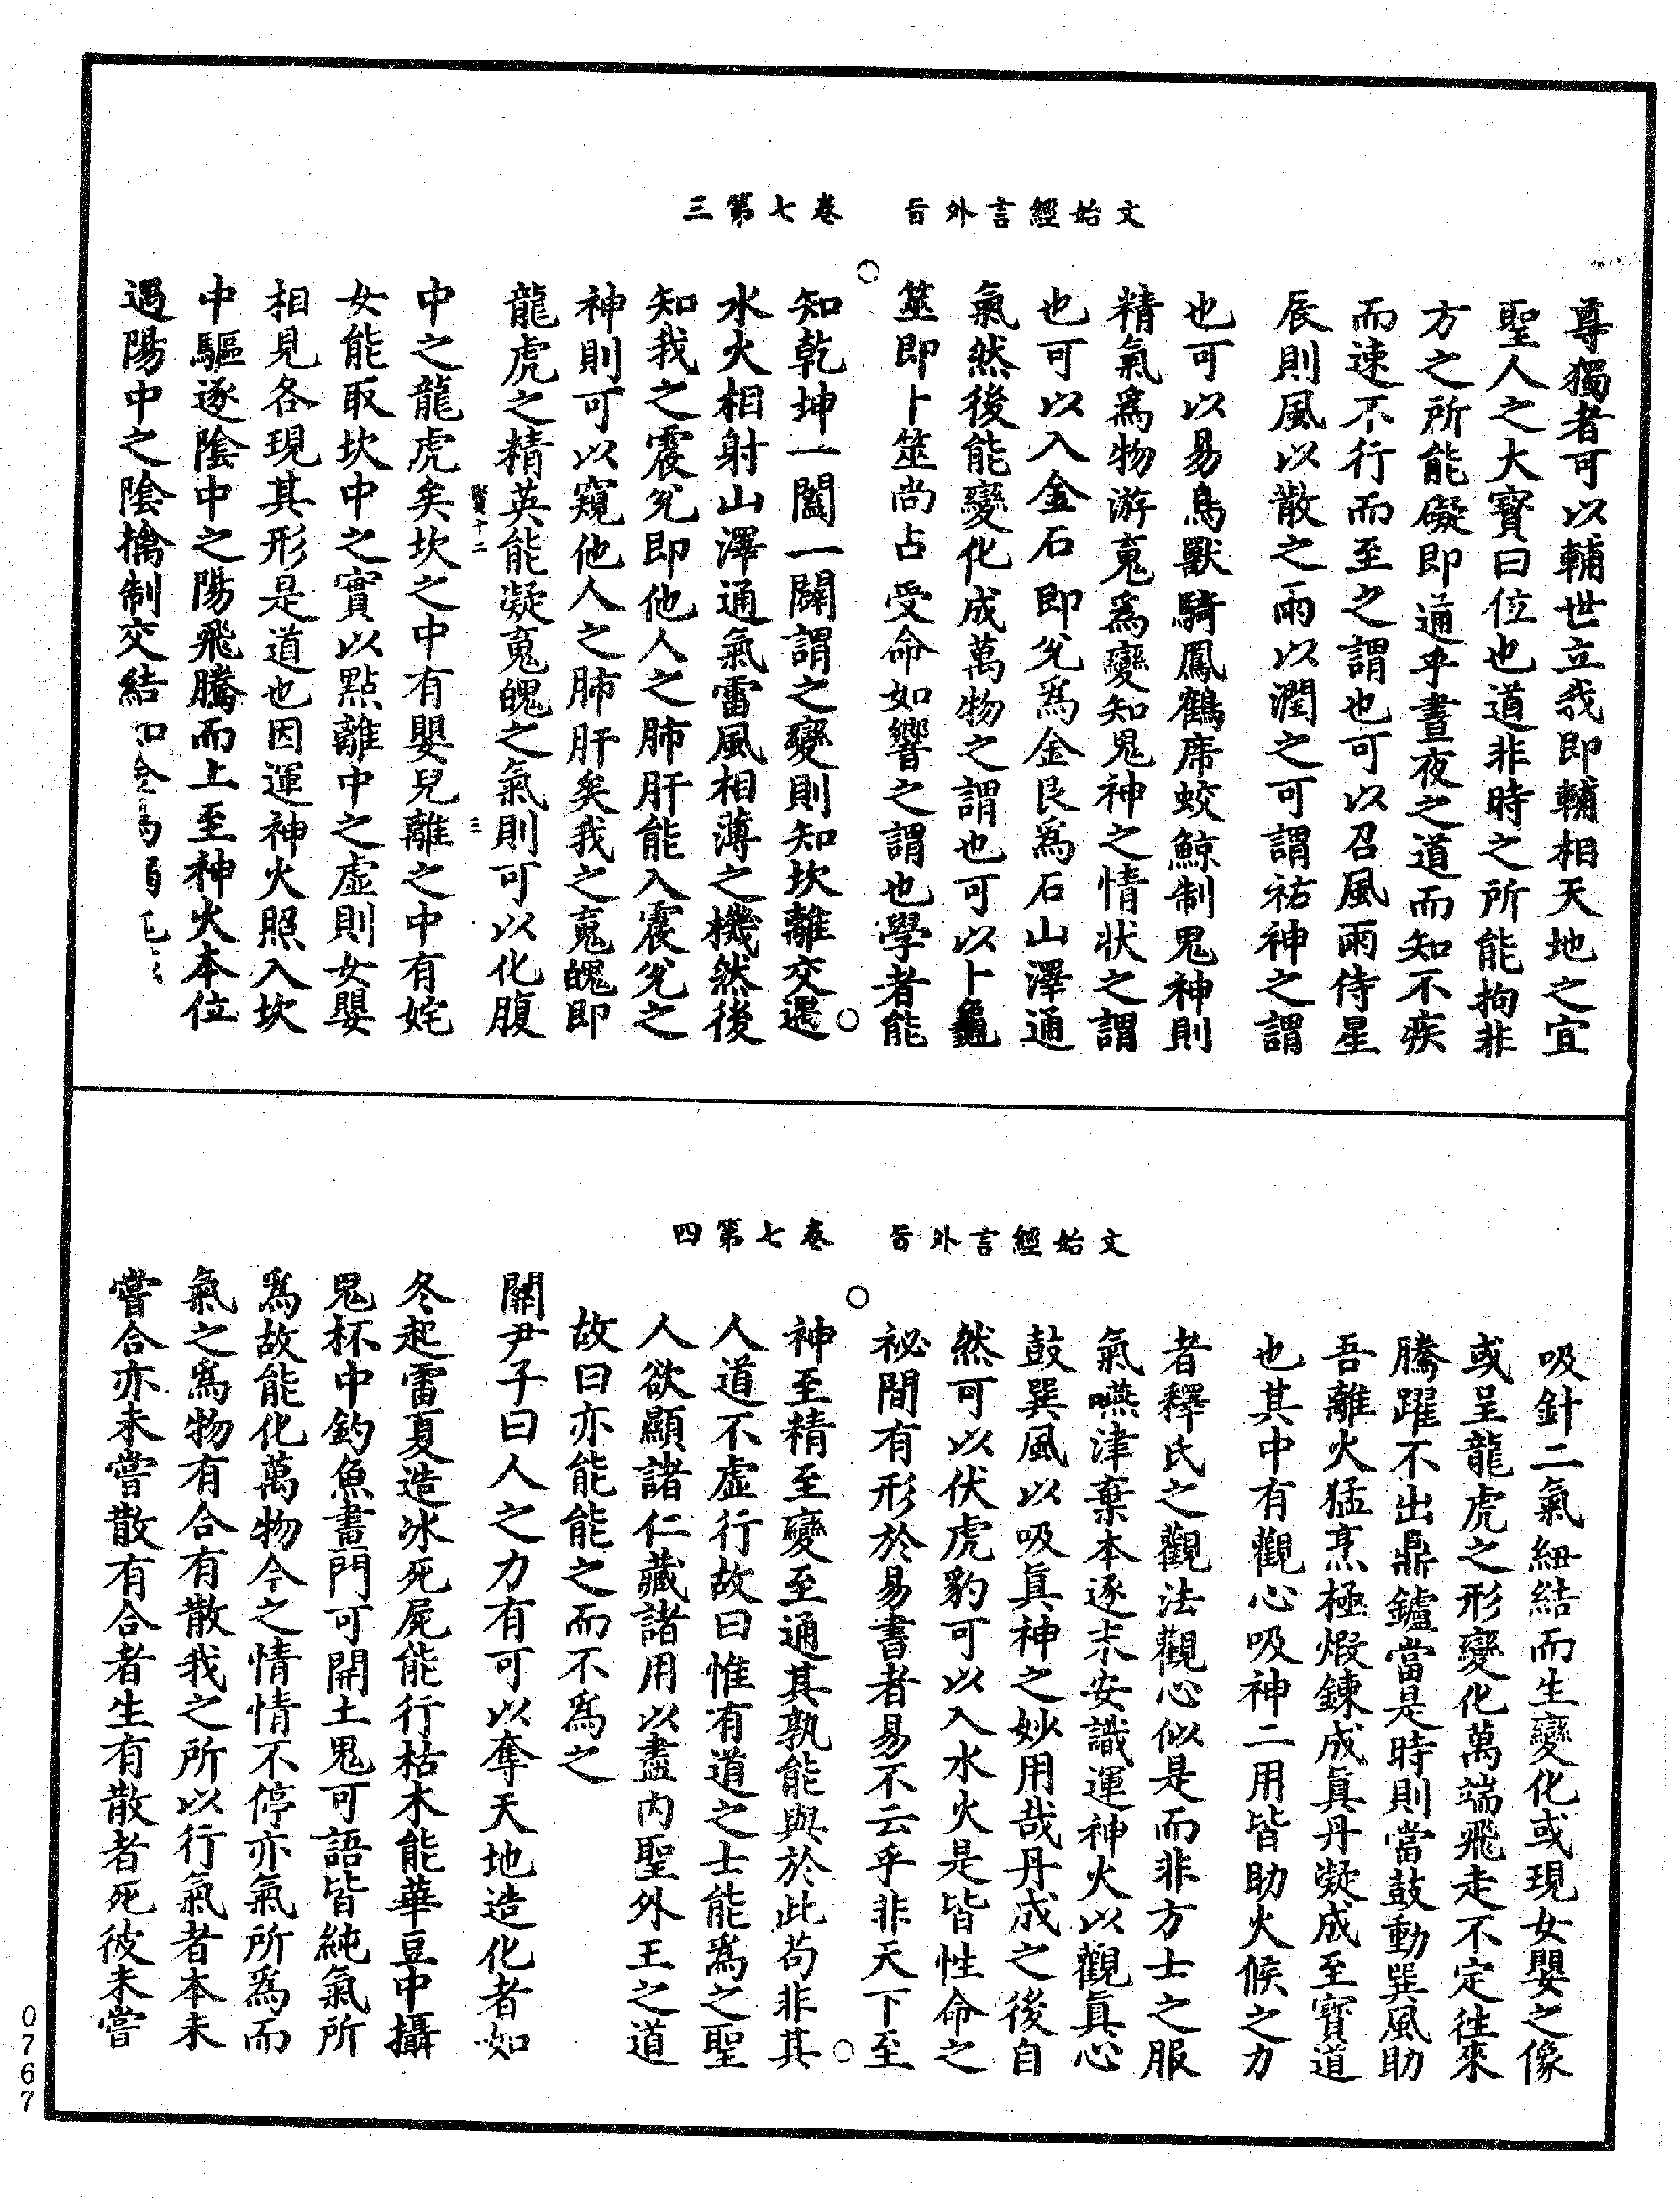 文始經言外旨　卷七第三
尊獨者可以輔世立我即輔相天地之宜
聖人之大寶曰位也道非時之所能拘非
方之所能礙即通乎晝夜之道而知不疾
而速不行而至之謂也可以召風雨侍星
辰則風以散之雨以潤之可謂祐神之謂
也可以易鳥獸騎鳳鶴席蛟鯨制鬼神則
精氣爲物游䰟爲變知鬼神之情狀之謂
也可以入金石即兊爲金艮爲石山澤通
氣然後能變化成萬物之謂也可以卜龜
筮即卜筮尚占受命如響之謂也學者能
知乾坤一闔一闢謂之變則知坎離交遇
水火相射山澤通氣雷風相薄之機然後
知我之震兊即他人之肺肝能入震兊之
神則可以窺他人之肺肝矣我之䰟魄即
龍虎之精英能凝䰟魄之氣則可以化腹
寶十二　三
中之龍虎矣坎之中有嬰兒離之中有姹
女能取坎中之實以點離中之虛則女嬰
相見各現其形是道也因運神火照入坎
中驅逐陰中之陽飛騰而上至神火本位
遇陽中之陰擒制交結
文始經言外旨　卷七第四
吸針二氣紐結而生變化或現女嬰之像
或呈龍虎之形變化萬端飛走不定往來
騰躍不出鼎鑪當是時則當鼓動巽風助
吾離火猛烹極煅鍊成眞丹凝成至寶道
也其中有觀心吸神二用皆助火候之力
者釋氏之觀法觀心似是而非方士之服
氣嚥津棄本逐末安識運神火以觀眞心
鼓巽風以吸眞神之妙用哉丹成之後自
然可以伏虎豹可以入水火是皆性命之
祕間有形於易書者易不云乎非天下至
神至精至變至通其孰能與於此苟非其
人道不虛行故曰惟有道之士能爲之聖
人欲顯諸仁藏諸用以盡内聖外王之道
故曰亦能能之而不爲之
關尹子曰人之力有可以奪天地造化者如
冬起雷夏造冰死屍能行枯木能華豆中攝
鬼杯中釣魚畫門可開土鬼可語皆純氣所
爲故能化萬物今之情情不停亦氣所爲而
氣之爲物有合有散我之所以行氣者本未
嘗合亦未嘗散有合者生有散者死彼未嘗
0767